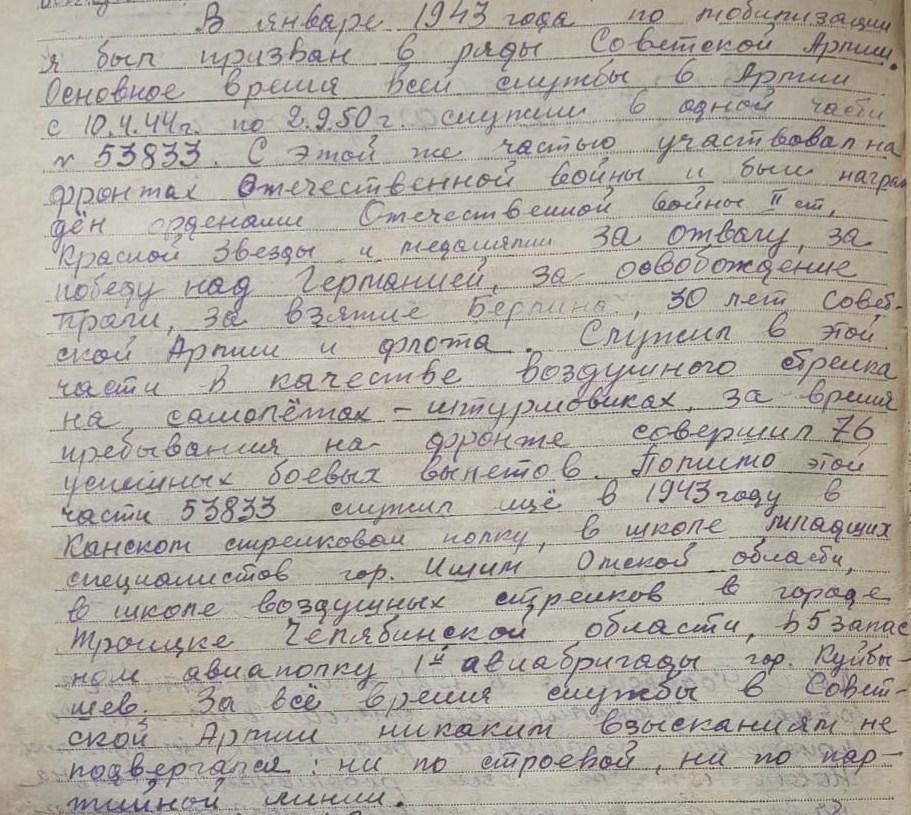 В январе 1943 года по мобилизации
я был призван в ряды Советской Армии.
Основное время всей службы в Армии
с 10.4.44г. по 2.9.50г. служил в одной части
№ 53833. С этой же частью участвовал на
фронтах Отечественной войны и был награж
дён орденами Отечественной войны II ст,
Красной Звезды и медалями за отвагу, за
победу над Германией, за освобождение
Праги, за взятие Берлина, 30 лет Совет-
ской Армии и флота. Служил в этой
части в качестве воздушного стрелка
на самолётах-штурмовиках, за время
пребывания на фронте совершил 76
успешных боевых вылетов. Помимо этой
части 53833 служил ещё в 1943 году в
Канском стрелковом полку, в школе младших
специалистов гор. Ишим Омской области,
в школе воздушных стрелков в городе
Троицке Челябинской области, в 5 запас
ном авиаполку 1й авиабригады гор. Куйбы-
шев. За всё время службы в Совет-
ской Армии никаким взысканиям не
подвергался: ни по строевой, ни по пар-
тийной линии.